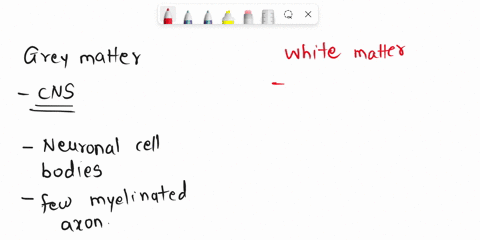 Grey matter
- CNS
- Neuronal cell
bodies
- few myelinated
axon.
White matter
-